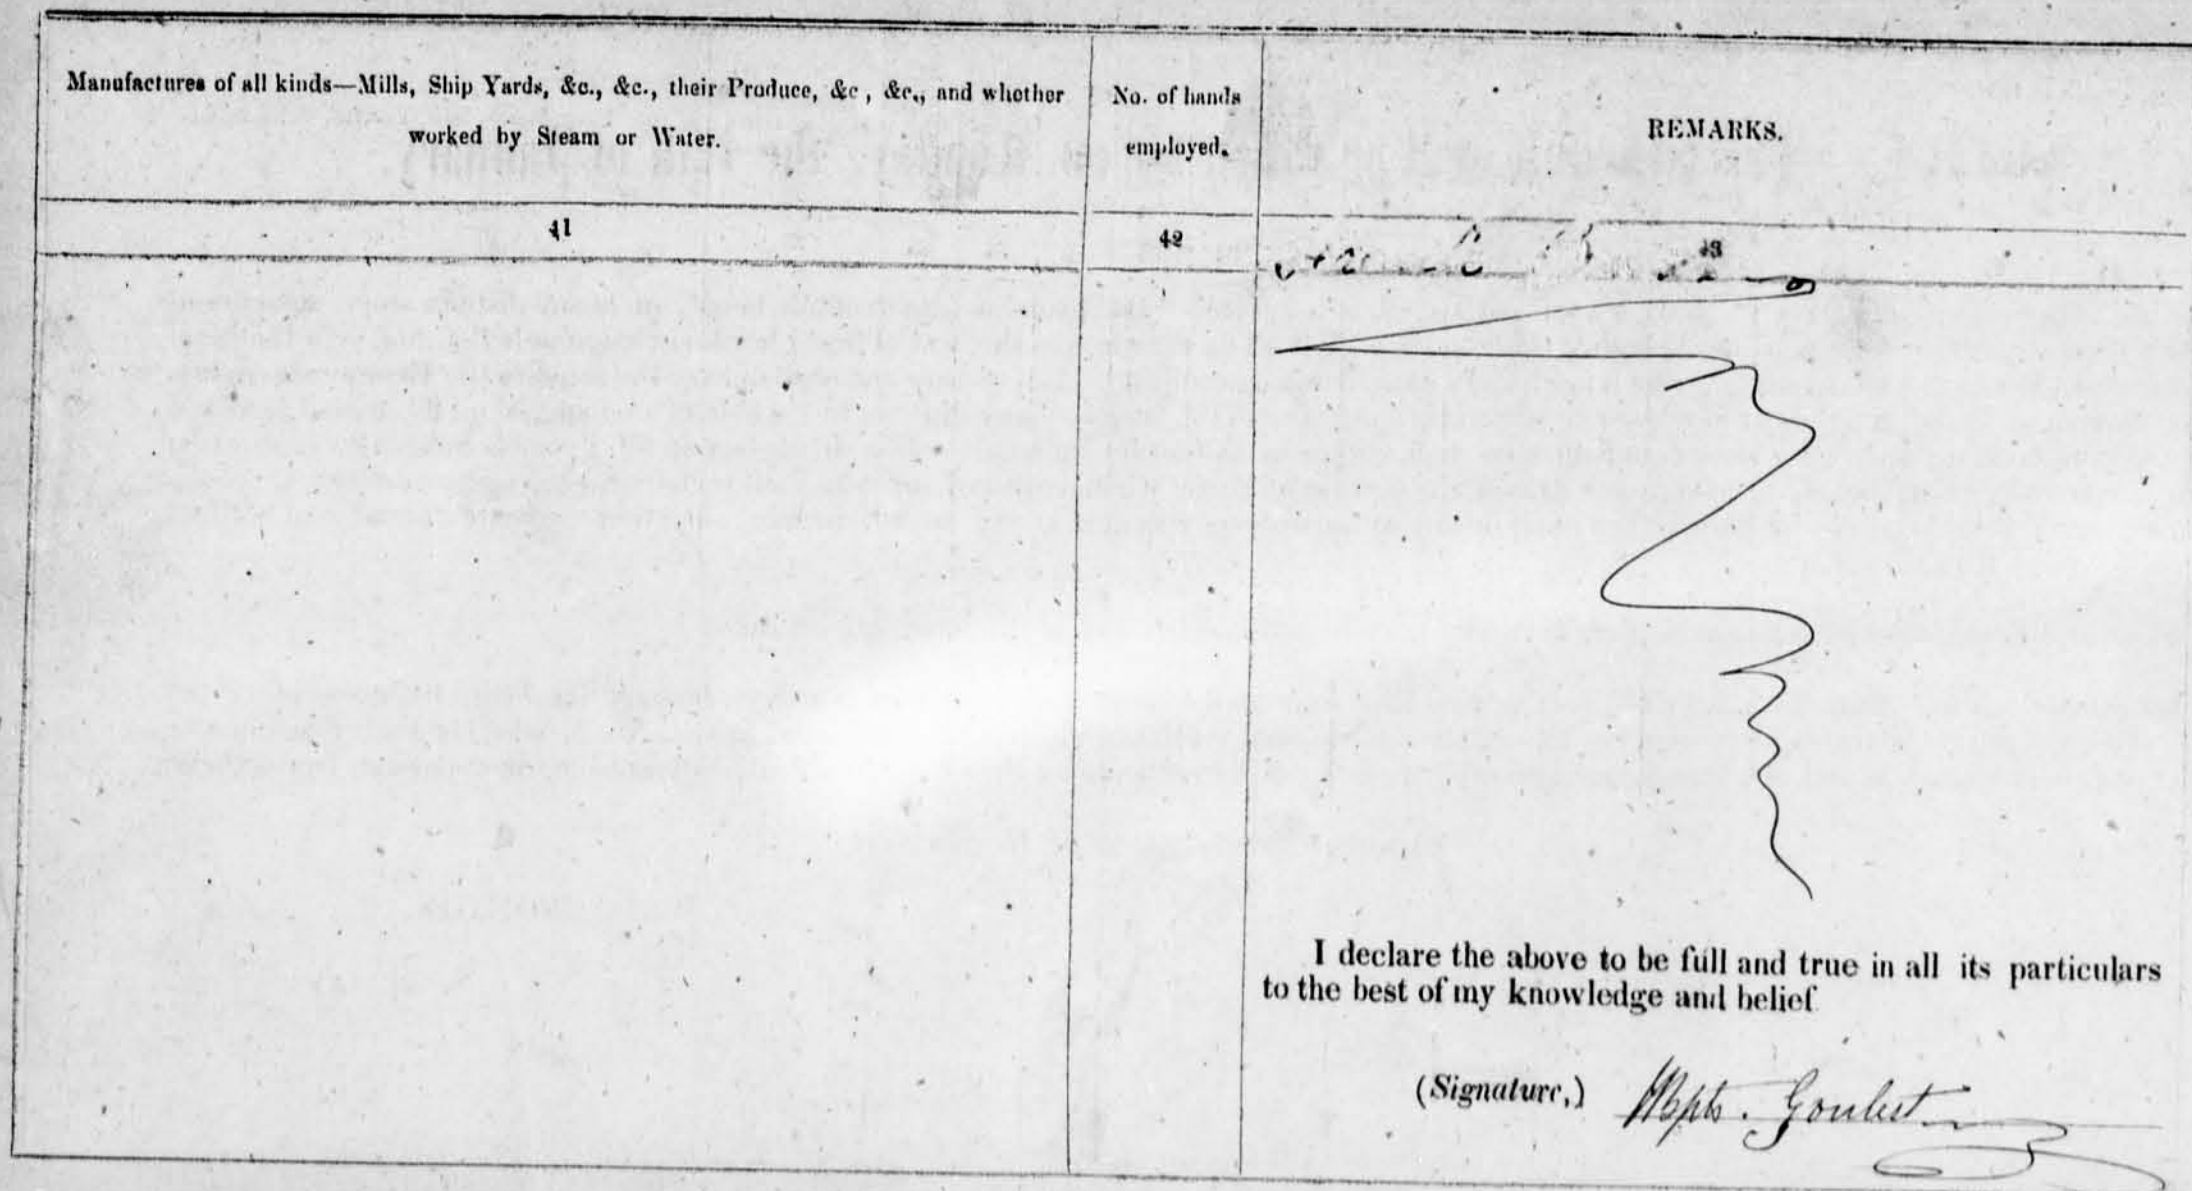 Manufactures of all kinds—Mills, Ship Yards, &c., &c., their Produce, &c, &c., and whether
worked by Steam or Water.
No. of hands
employed.
REMARKS.
41
42
43
I declare the above to be full and true in all its particulars
to the best of my knowledge and belief
(Signature,)